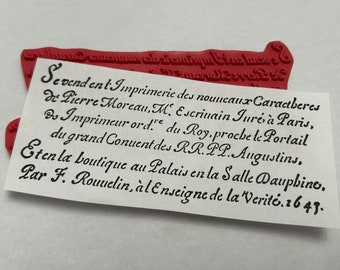 Se vendent l'Imprimerie des nouueaux Caracteres
de Pierre Moreau, Mᵉ. Escriuain Iuré à Paris,
& Imprimeur ordʳᵉ. du Roy, proche le Portail
du grand Conuent des R.R. P.P. Augustins,
Et en la boutique au Palais en la Salle Dauphine,
Par F. Rouuelin, à l'Enseigne de la Verité. 1643.